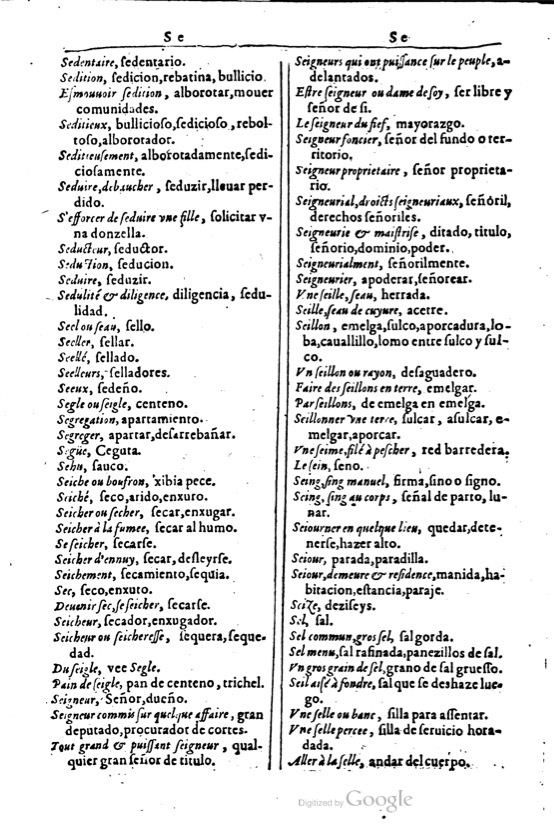 Se
Sedentaire, sedentario.
Sedition, sedicion, rebatina, bullicio.
Esmouuoir sedition, alborotar, mouer
comunidades.
Seditieux, bullicioso, sedicioso, rebol-
toso, alborotador.
Seditieusement, alborotadamente, sedi-
ciosamente.
Seduire, debaucher, seduzir, lleuar per-
dido.
S'efforcer de seduire vne fille, solicitar v-
na donzella.
Seducteur, seductor.
Seduction, seducion.
Seduire, seduzir.
Sedulité & diligence, diligencia, sedu-
lidad.
Seel ou seau, sello.
Seeller, sellar.
Seellé, sellado.
Seelleurs, selladores.
Seeux, sedeño.
Segle ou seigle, centeno.
Segregation, apartamiento.
Segreger, apartar, desarrebañar.
Següe, Ceguta.
Sehu, sauco.
Seiche ou boufron, xibia pece.
Seiché, seco, arido, enxuro.
Seicher ou secher, secar, enxugar.
Seicher à la fumee, secar al humo.
Se seicher, secarse.
Seicher d'ennuy, secar, desleyrse.
Seichement, secamiento, sequia.
Sec, seco, enxuto.
Deuenir sec, se seicher, secarse.
Seicheur, secador, enxugador.
Seicheur ou seicheresse, sequera, seque-
dad.
Du seigle, vee Segle.
Pain de seigle, pan de centeno, trichel.
Seigneur, Señor, dueño.
Seigneur commis sur quelque affaire, gran
deputado, procurador de cortes.
Tout grand & puissant seigneur, qual-
quier gran señor de titulo.
Se
Seigneurs qui ont puissance sur le peuple, a-
delantados.
Estre seigneur ou dame de soy, ser libre y
señor de si.
Le seigneur du fief, mayorazgo.
Seigneur foncier, señor del fundo o ter-
ritorio.
Seigneur proprietaire, señor proprieta-
rio.
Seigneurial, droicts seigneuriaux, señoril,
derechos señoriles.
Seigneurie & maistrise, ditado, titulo,
señorio, dominio, poder.
Seigneurialment, señorilmente.
Seigneurier, apoderar, señorear.
Vne seille, seau, herrada.
Seille, seau de cuyure, acetre.
Seillon, emelga, sulco, aporcadura, lo-
ba, cauallillo, lomo entre sulco y sul-
co.
Vn seillon ou rayon, desaguadero.
Faire des seillons en terre, emelgar.
Par seillons, de emelga en emelga.
Seillonner vne terre, sulcar, asulcar, e-
melgar, aporcar.
Vne seime, filé à pescher, red barredera.
Le sein, seno.
Seing, sing manuel, firma, sino o signo.
Seing, sing au corps, señal de parto, lu-
nar.
Seiourner en quelque lieu, quedar, dete-
nerse, hazer alto.
Seiour, parada, paradilla.
Seiour, demeure & residence, manida, ha-
bitacion, estancia, paraje.
Seize, deziseys.
Sel, sal.
Sel commun, gros sel, sal gorda.
Sel menu, sal rafinada, panezillos de sal.
Vn gros grain de sel, grano de sal gruesso.
Seil aisé à fondre, sal que se deshaze lue-
go.
Vne selle ou banc, silla para assentar.
Vne selle percee, silla de seruicio hora-
dada.
Aller à la selle, andar del cuerpo.
Digitized by Google